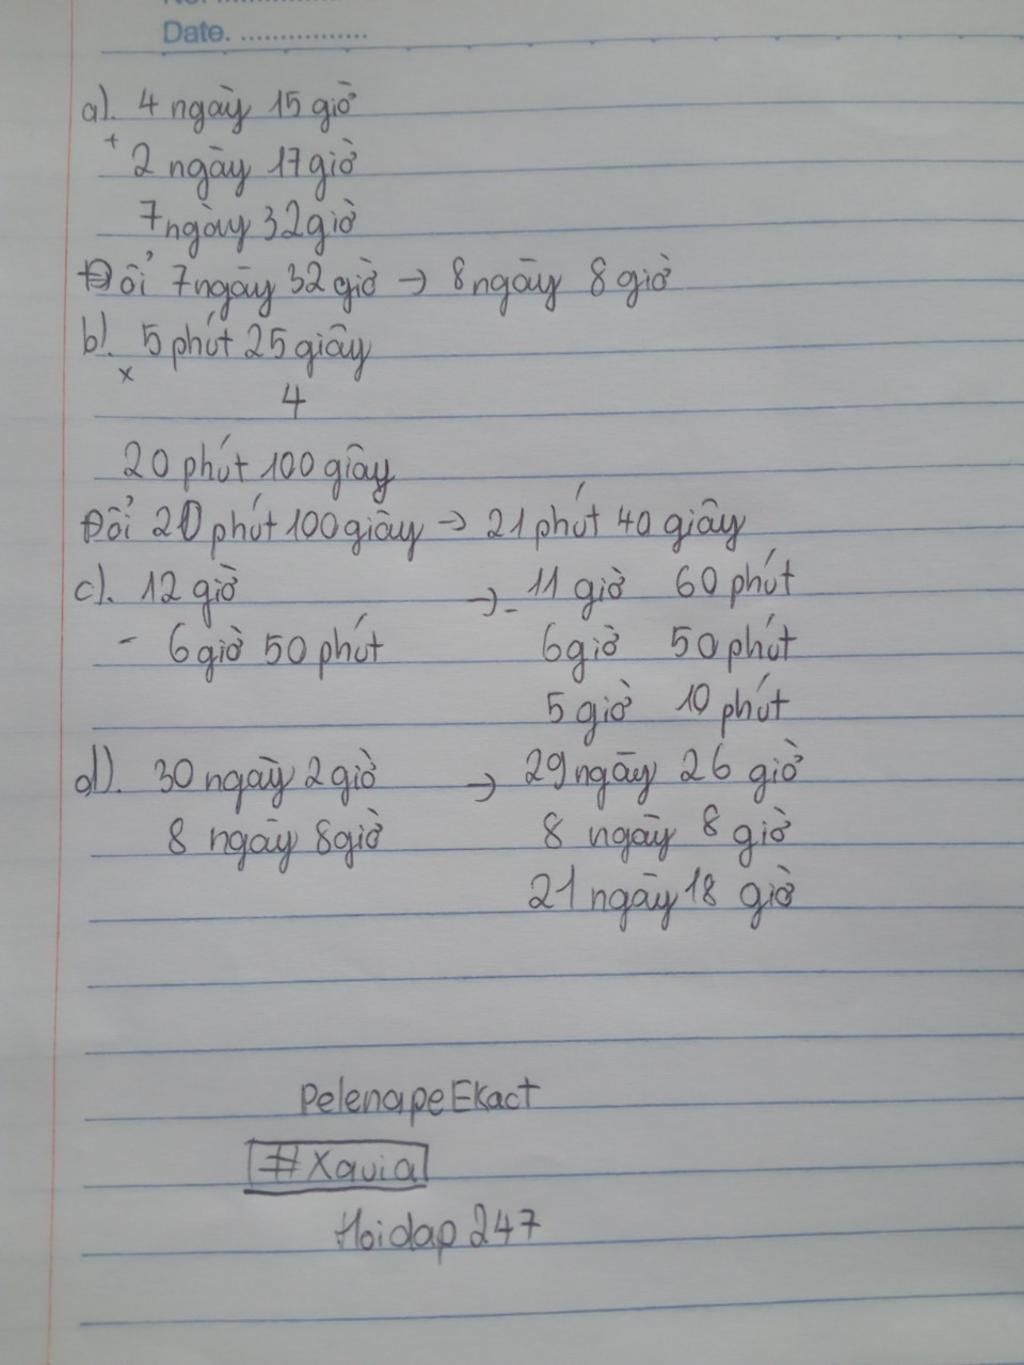 Date. ................
a). 4 ngày 15 giờ
+ 2 ngày 17 giờ
7 ngày 32 giờ
Đổi 7 ngày 32 giờ → 8 ngày 8 giờ
b). 5 phút 25 giây
x
4
20 phút 100 giây
Đổi 20 phút 100 giây → 21 phút 40 giây
c). 12 giờ → - 11 giờ 60 phút
- 6 giờ 50 phút 6 giờ 50 phút
5 giờ 10 phút
d). 30 ngày 2 giờ → 29 ngày 26 giờ
8 ngày 8 giờ 8 ngày 8 giờ
21 ngày 18 giờ
PelenapeEkact
#Xavia
Hoidap247